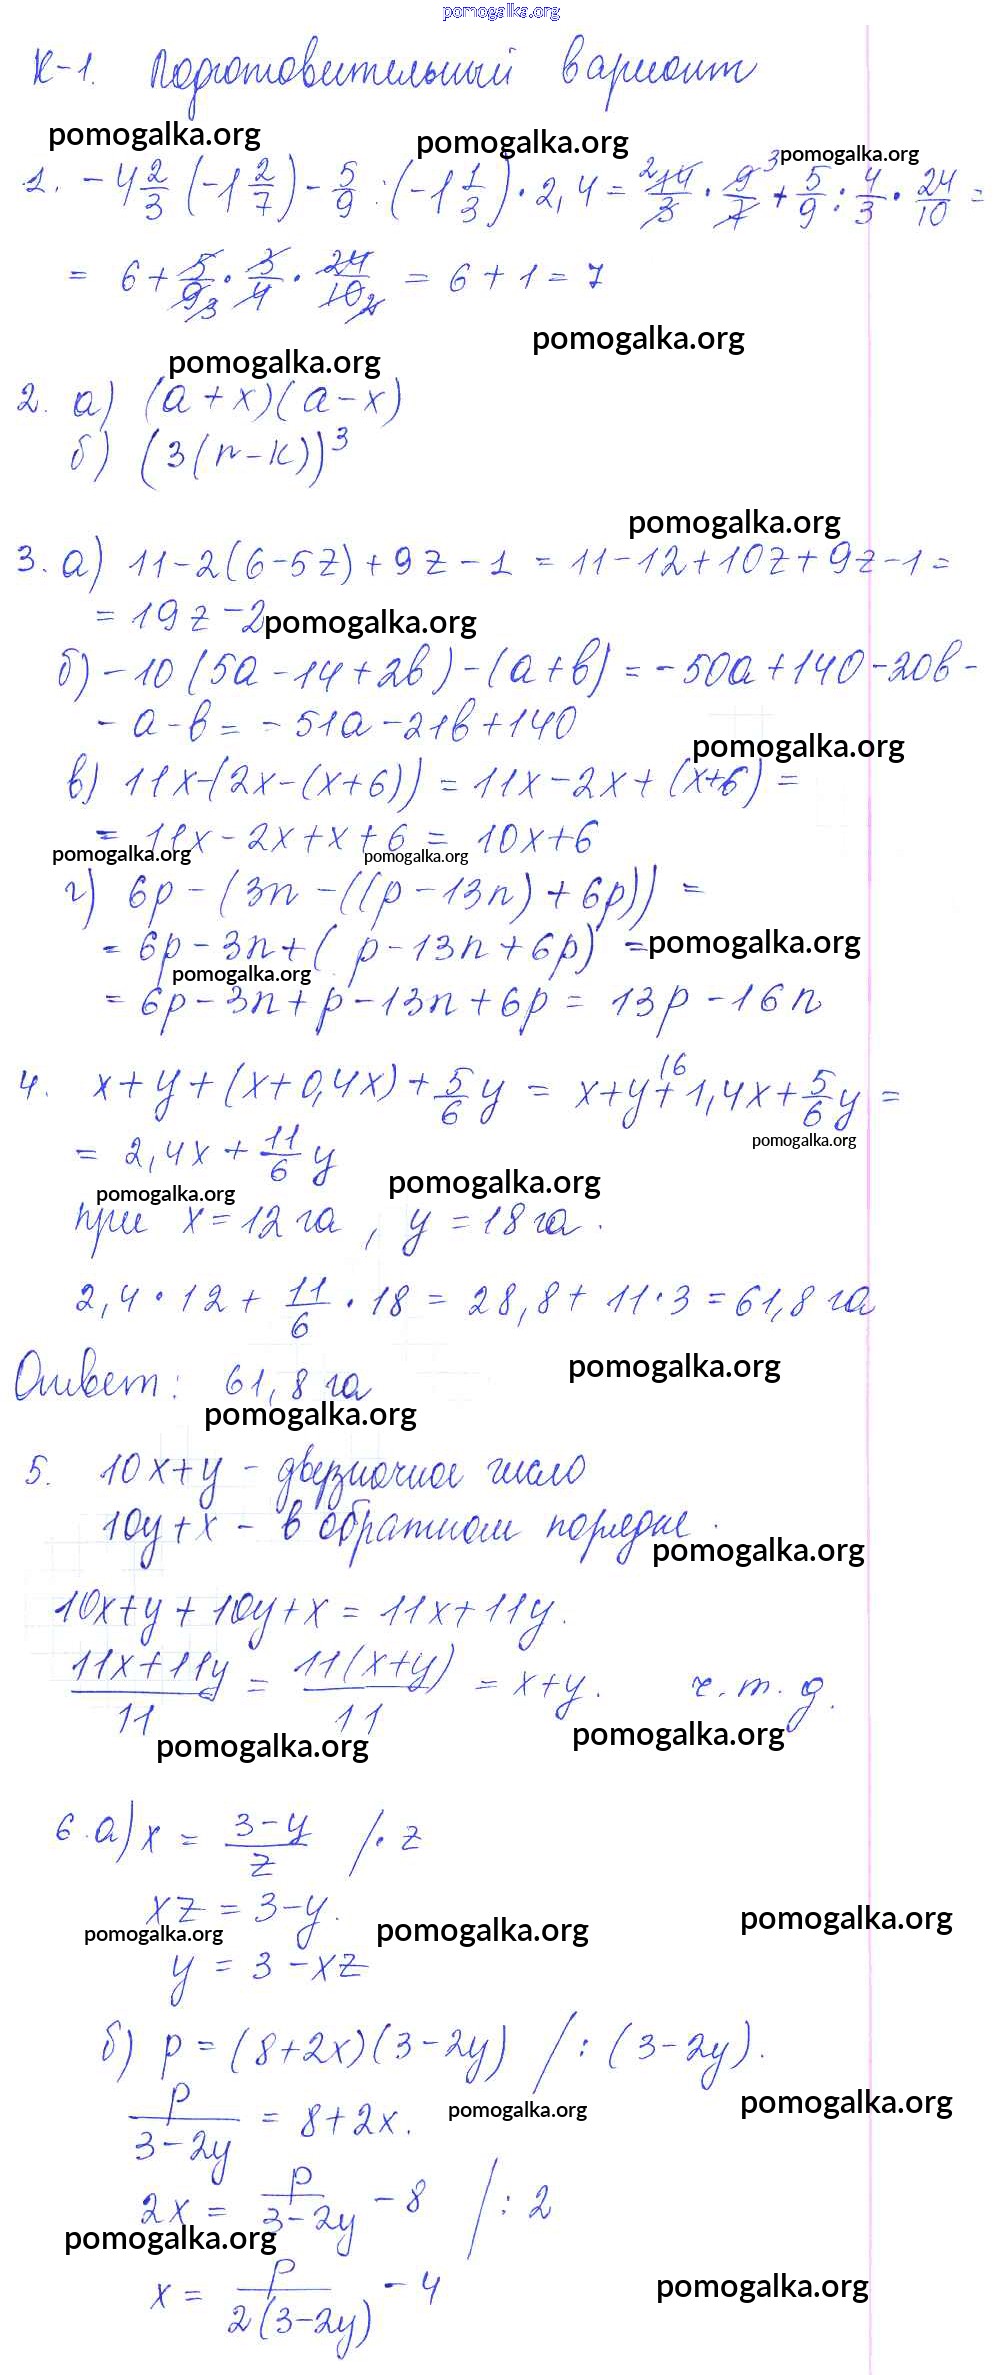 pomogalka.org
К-1. Подготовительный вариант
pomogalka.org pomogalka.org pomogalka.org
1. -4 2/3 (-1 2/7) - 5/9 : (-1 1/3) · 2,4 = 14/3 · 9/7 + 5/9 : 4/3 · 24/10 =
= 6 + 5/9 · 3/4 · 24/10 = 6 + 1 = 7
pomogalka.org pomogalka.org
2. а) (a + x)(a - x)
б) (3(n - k))³
pomogalka.org
3. а) 11 - 2(6 - 5z) + 9z - 1 = 11 - 12 + 10z + 9z - 1 =
= 19z - 2 pomogalka.org
б) -10(5a - 14 + 2b) - (a + b) = -50a + 140 - 20b -
- a - b = -51a - 21b + 140
pomogalka.org
в) 11x - (2x - (x + 6)) = 11x - 2x + (x + 6) =
= 11x - 2x + x + 6 = 10x + 6
pomogalka.org pomogalka.org
г) 6p - (3n - ((p - 13n) + 6p)) =
= 6p - 3n + (p - 13n + 6p) = pomogalka.org
pomogalka.org
= 6p - 3n + p - 13n + 6p = 13p - 16n
4. x + y + (x + 0,4x) + 5/6 y = x + y + 1,4x + 5/6 y =
pomogalka.org
= 2,4x + 11/6 y
pomogalka.org pomogalka.org
при x = 12 га, y = 18 га.
2,4 · 12 + 11/6 · 18 = 28,8 + 11 · 3 = 61,8 га
Ответ: 61,8 га
pomogalka.org
pomogalka.org
5. 10x + y - двузначное число
10y + x - в обратном порядке.
pomogalka.org
10x + y + 10y + x = 11x + 11y.
11x + 11y / 11 = 11(x + y) / 11 = x + y. ч.т.д.
pomogalka.org pomogalka.org
6. а) x = 3 - y / z /· z
xz = 3 - y.
pomogalka.org pomogalka.org pomogalka.org
y = 3 - xz
б) p = (8 + 2x)(3 - 2y) /: (3 - 2y).
p / 3 - 2y = 8 + 2x.
pomogalka.org pomogalka.org
2x = p / 3 - 2y - 8 /: 2
pomogalka.org
x = p / 2(3 - 2y) - 4
pomogalka.org